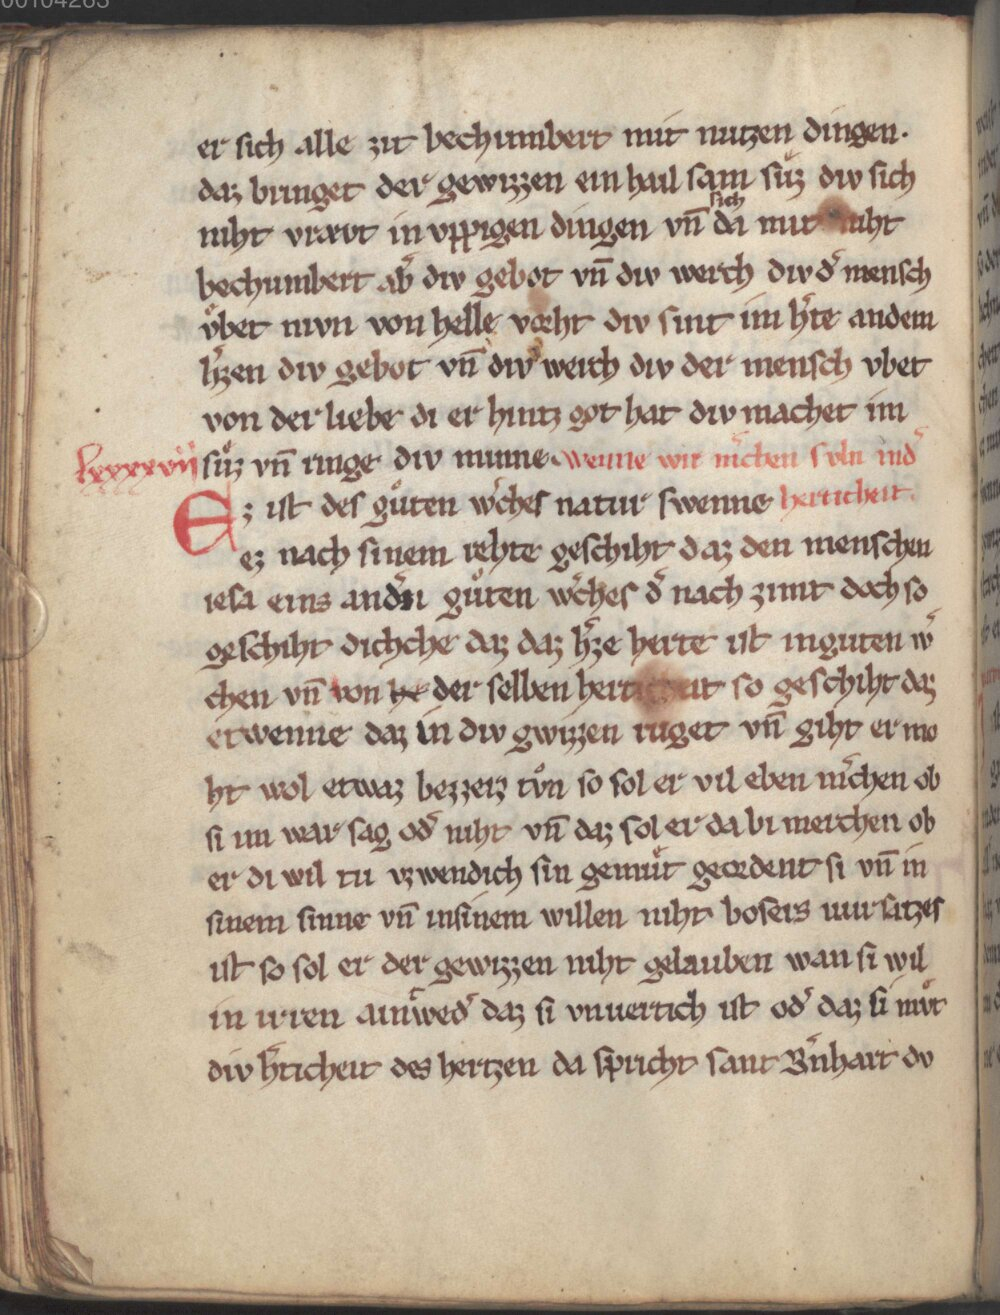 00104263
er sich alle zit bechumbert mit nutzen dingen.
daz bringet der gewizzen ein hail sam suͤz div sich
niht vrævt in vppigen dingen vn̄ sich da mit niht
bechumbert ab̓ div gebot vn̄ div werch div d̓ mensch
vͤbet nivn von helle vorht div sint im h̓te an dem
h̓zen div gebot vn̄ div werch div der mensch vbet
von der liebe di er hintz got hat div machet im
lxxxxvij suͤz vn̄ ringe div minne. wenne wir m̓chen svln in d̓
Ez ist des guͤten w̓ches natur swenne herticheit.
ez nach sinem rehte geschiht daz den menschen
iesa eins and̓n guͤten w̓ches d̓ nach zimt doch so
geschiht dichche daz daz h̓ze herte ist in guten w̓
chen vn̄ von he der selben herticheit so geschiht daz
etwenne daz in div gwizzen ruget vn̄ giht er mo
ht wol etwaz bezzerz tvͦn so sol er vil eben m̓chen ob
si im war sag od̓ niht vn̄ daz sol er da bi merchen ob
er di wil tu vzwendich sin gemuͤt geordent si vn̄ in
sinem sinne vn̄ in sinem willen niht bosers uursatzes
ist so sol er der gewizzen niht gelauben wan si wil
in irren ainwed̓ daz si vnuertich ist od̓ daz si mvͤt
div h̓ticheit des hertzen da spricht sant B̓nhart dv